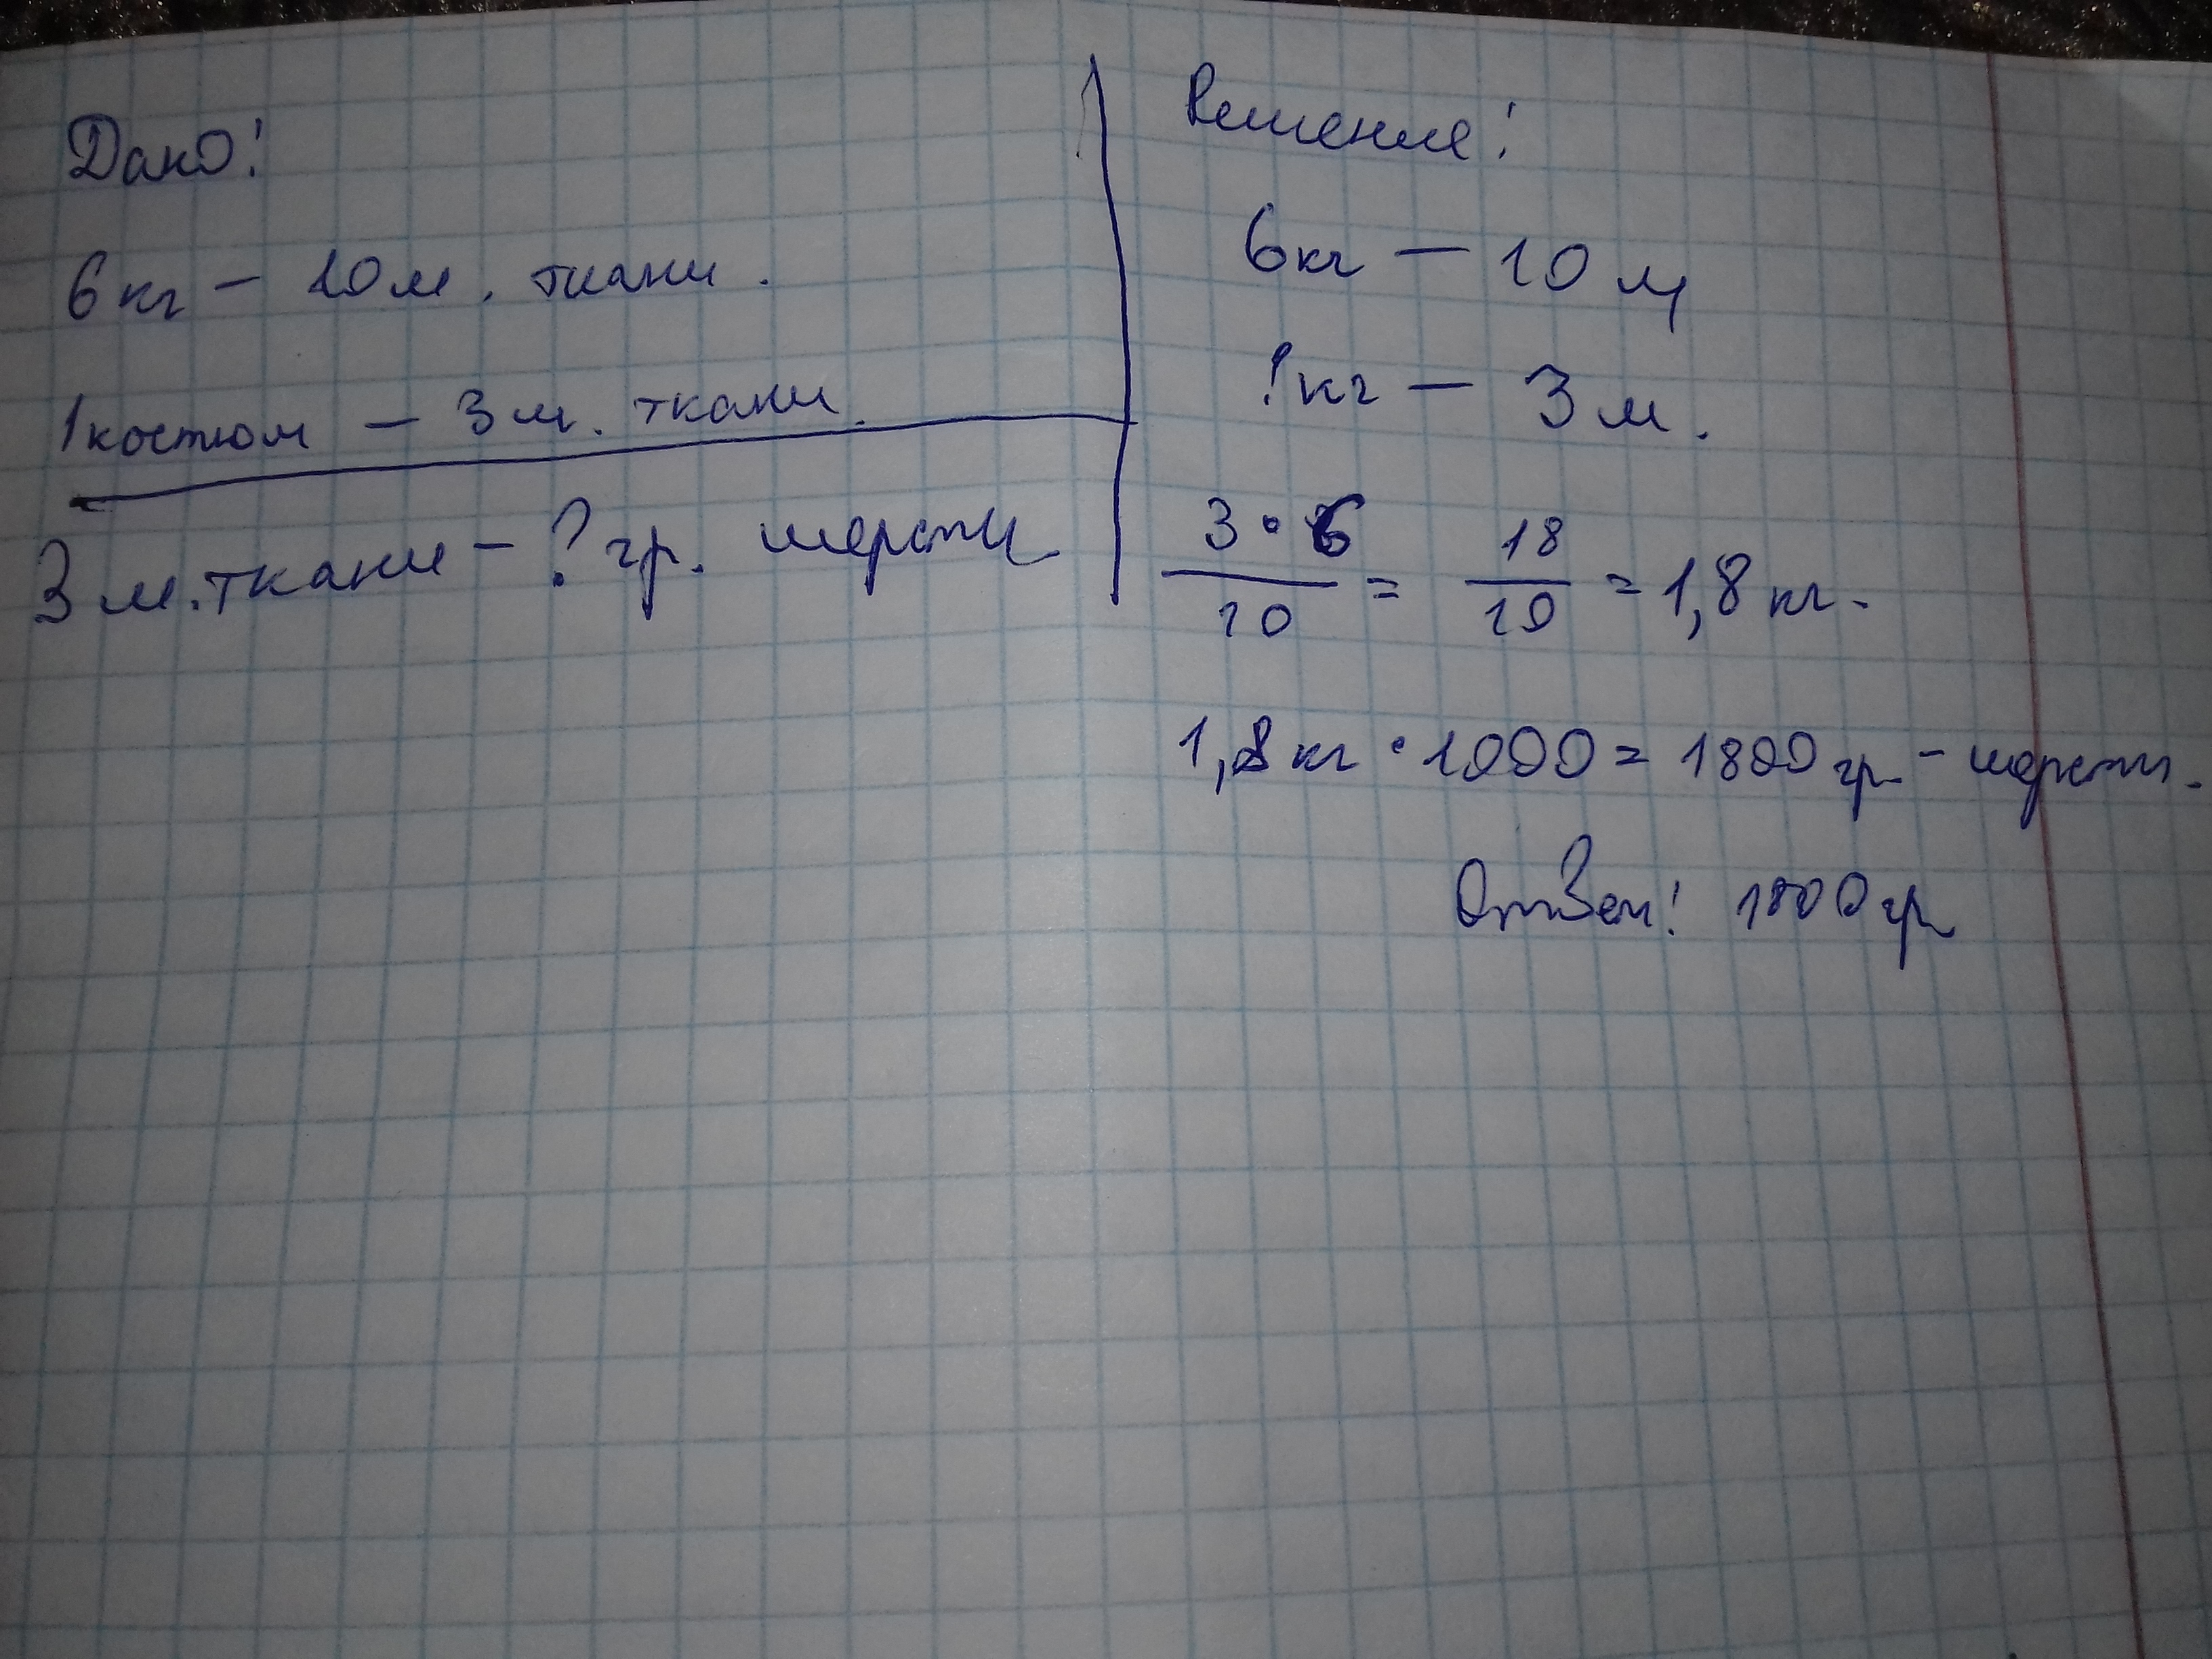 Дано:
6 кг - 10 м. ткани.
1 костюм - 3 м. ткани.
3 м. ткани - ? гр. шерсти
Решение:
6 кг - 10 м
? кг - 3 м.
3 • 6 / 10 = 18 / 10 = 1,8 кг.
1,8 кг • 1000 = 1800 гр - шерсти.
Ответ: 1800 гр